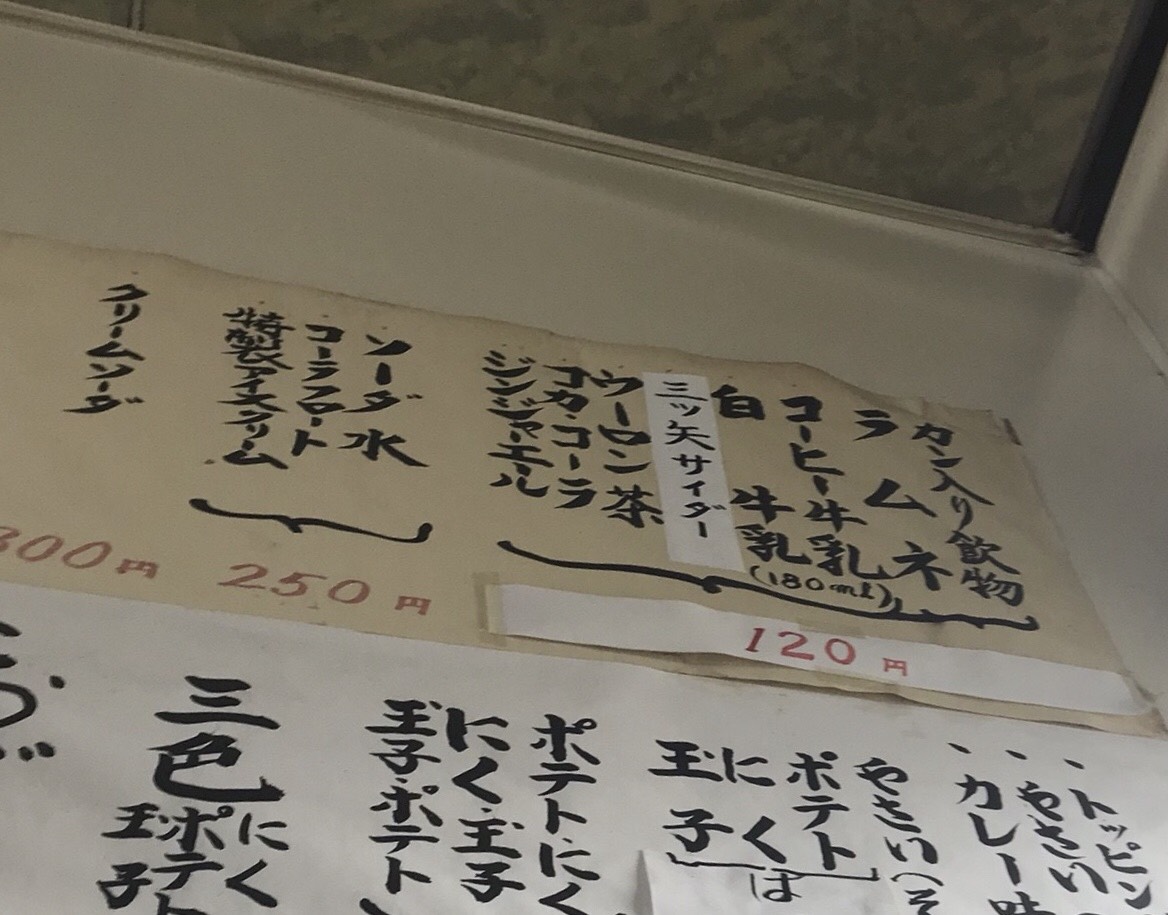 カン入り飲物
ラムネ
コーヒー牛乳
(180ml)
白 牛乳
三ツ矢サイダー
ウーロン茶
コカ・コーラ
ジンジャーエール
120円
ソーダ水
コーラフロート
特製アイスクリーム
250円
クリームソーダ
300円
、トッピン
、やさい
、カレー味
やさい(そ
ポテト
にく
玉子
は
ポテト・にく
にく・玉子
玉子・ポテト
三色
にく
ポテト
玉子